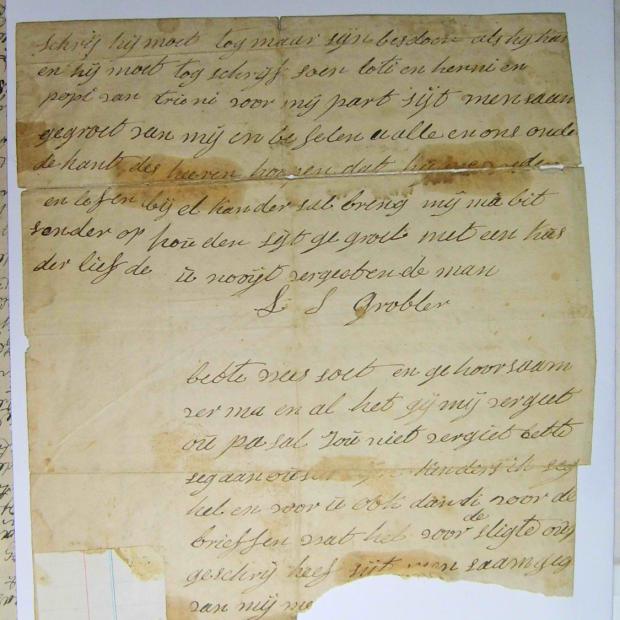 schrij hij moet tog maar sijn besdoen als hij kan
en hij moet tog schrijf soen loti en herni en
popi van trieni voor mij part sijt men saam
gegroet van mij en be felen u alle en ons onde
de hant des heeren hoopen dat
en lesen bij el kander sal bring mij ma bit
sonder op houden sijt ge groet met een kus
der liefde u nooijt vergeeten de man
L S Grobler
bette wees soet en gehoorsaam
ver ma en al het gij mij vergeet
ou pa sal Jou niet vergeet bette
seg aan ous kinders ik seg
hel en voor u ook danki voor de
brieffen wat hel voor de sligte ous
geschrij heef sijt men saam geg
van mij me